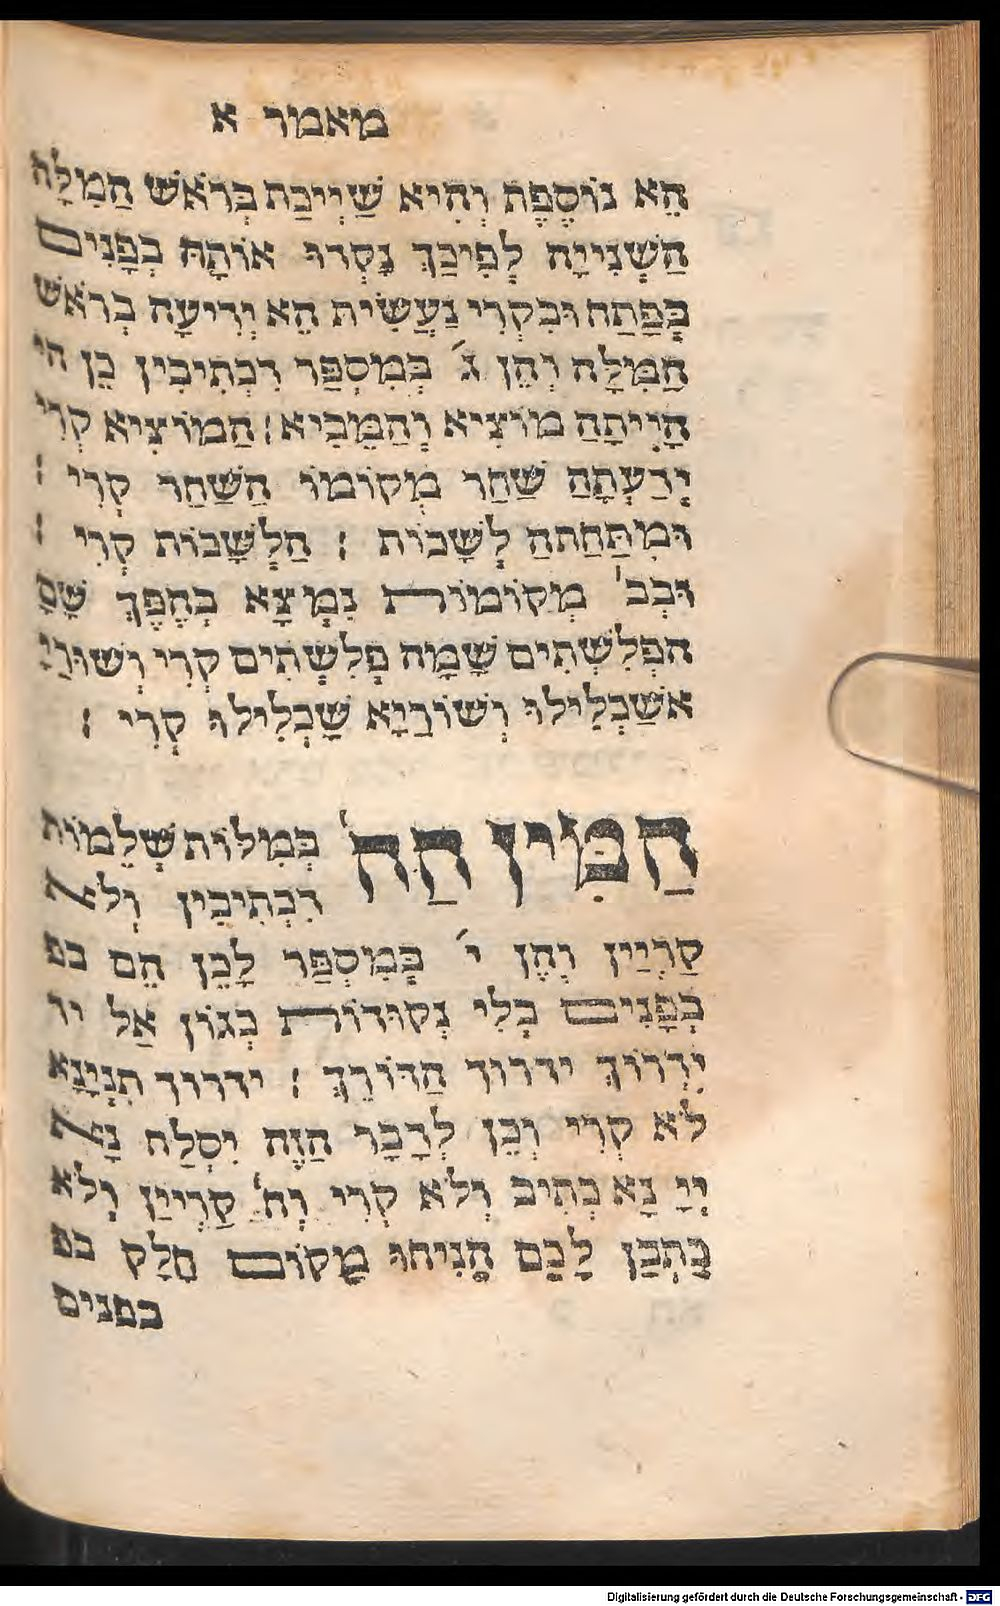 מאמר א
הֵא נוֹסֶפֶת וְהִיא שַׁיְיכַת בְּרֹאשׁ הַמִלָּה
הַשְׁנִיָיה לְפִיכַךְ נָקְדוּ אוֹתָהּ בִּפָנִים
בְּפַתַח וּבִקְרִי נַעֲשִׂית הֵא יְדִיעָה בְּרֹאשׁ
הַמִּלָּה וְהֵן ג' בְּמִסְפַּר דִכְתִיבִין כֵן הי
הָיְיתָהַ מוֹצִיא וְהַמֵּבִיא׃ הַמוֹצִיא קְרִי
יְדַעְתָהַ שַׁחַר מְקוֹמוֹ הַשַׁחַר קְרִי ׃
וּמִתַּחַתהַ לְשָׁכוֹת ׃ הַלְשָׁכוֹת קְרִי ׃
וּבְב' מְקוֹמוֹת נִמְצָא בְּהֶפֶךְ שָׁם
הפְלִשְׁתִים שָׁמָּה פְלִשְׁתִים קְרִי וְשׁוּרַיָ
אשַׁכְלִילוּ וְשׁוּרַיָא שַׁכְלִילוּ קְרִי ׃
הַמִּין הַה' בְּמִלּוֹת שְׁלֵמוֹת
דִכְתִיבִין וְלא
קַרְיַין וְהֵן י' בְּמִסְפַּר לָכֵן הֵם בפ
בִּפָנִים בְּלִי נְקוּדוֹת כְּגוֹן אַל יד
יִדְרוֹךְ ידרוך הַדּוֹרֵךְ ׃ ידרוך תִנְיָנָא
לֹא קְרִי וְכֵן לְדָבָר הַזֶה יִסְלַח נָא
יְיָ נָא כְּתִיב וְלֹא קְרִי וְח' קַרְיין וְלֹא
כְתְבָן לָכֵם הֻנִיחוּ מָקוֹם חלָק בפ
בפנים
Digitalisierung gefördert durch die Deutsche Forschungsgemeinschaft - DFG